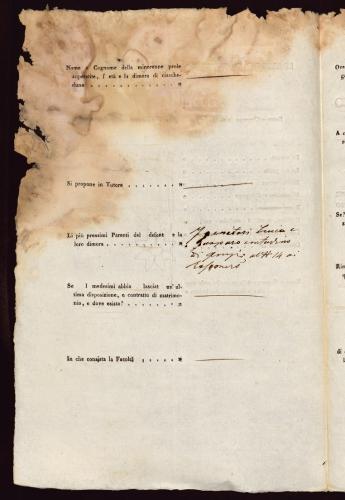 Nome e Cognome della minorenne prole
superstite, l' età e la dimora di ciasche-
duno . . . . . . . . . . . . .
Si propone in Tutore . . . . . . . .
Li più prossimi Parenti del defont e la
loro dimora . . . . . . . . . . .
genitori Lucia e
Gasparo contadino
di al N 14 ai
Se I medesimi abbia lasciat un' ul-
tima disposizione, o contratto di matrimo-
nio, e dove esista? . . . . . . . .
In che consista la Facoltà . . . . .